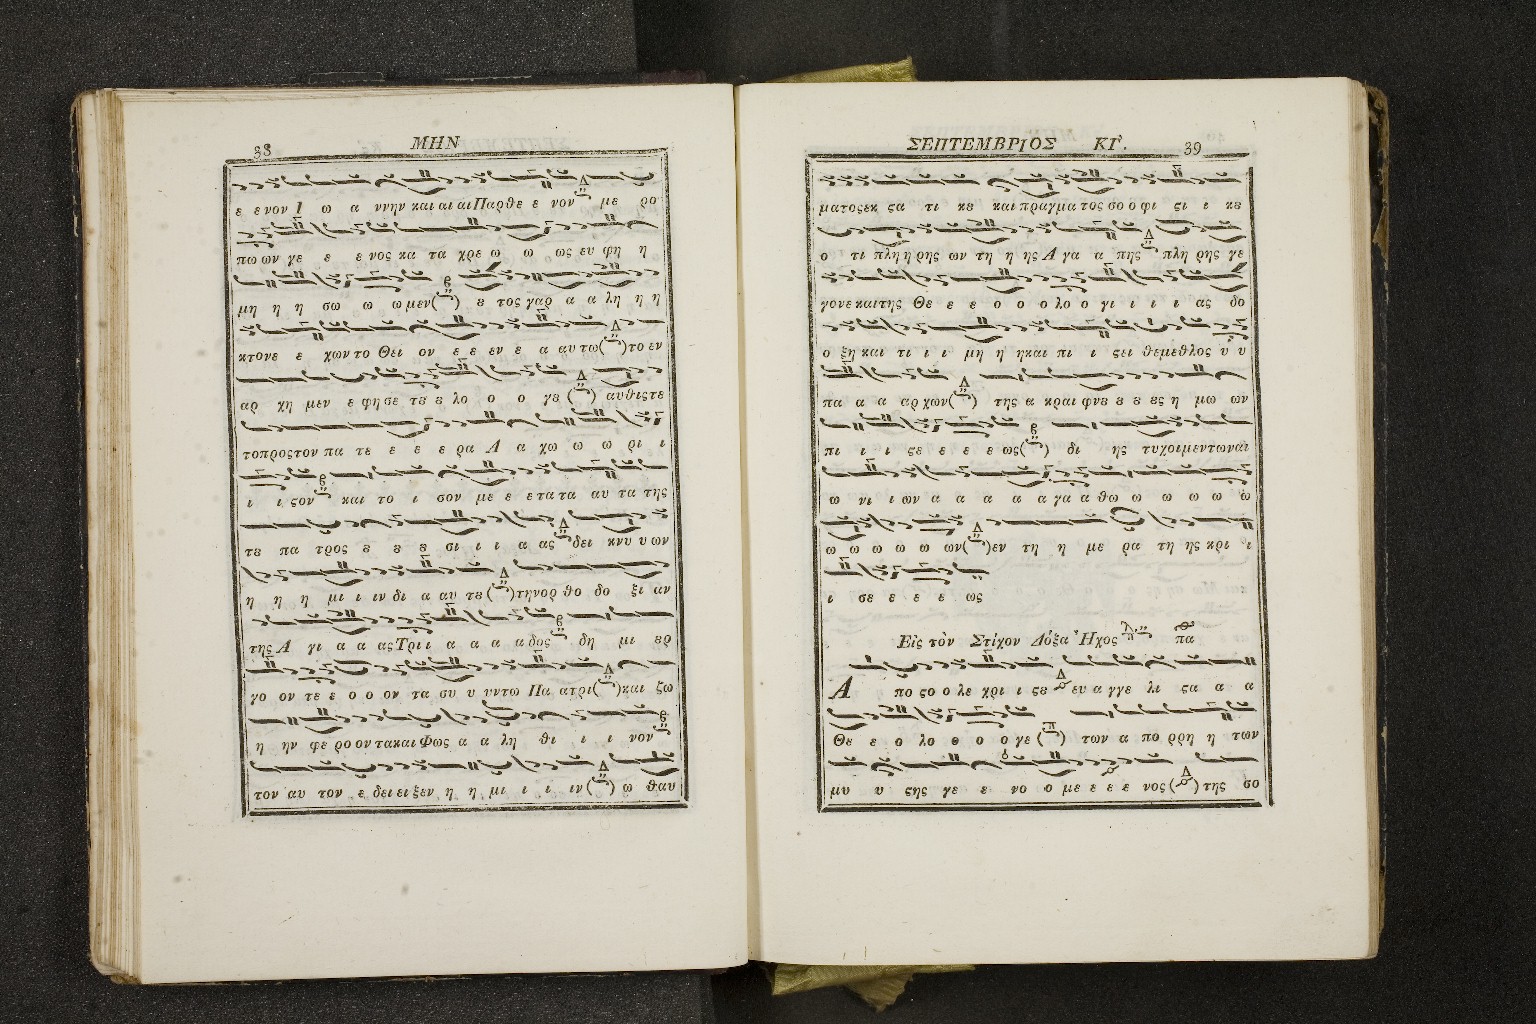 38 ΜΗΝ
ε ε νον Ι ω α ννην και αι αι Παρθε ε νον με ρο
πω ων γε ε ε νος κα τα χρε ω ω ως ευ φη η
μη η η σω ω ω ω μεν ( ) ȣ τος γαρ α α λη η η
κτονε ε χων το Θει ον ε ε εν ε α αυ τω ( ) το εν
αρ χη μεν ε φη σε τȣ ȣ λο ο ο γȣ ( ) αυθιςτε
τοπροςτον πα τε ε ε ε ρα Α α χω ω ω ρι ι
ι ι ςον και το ι σον με ε ετα τα αυ τα της
τȣ πα τρος ȣ ȣ ȣ σι ι ι α ας δει κνυ υ ων
η η η μι ι ιν δι α αυ τȣ ( ) τηνορ θο δο ξι αν
της Α γι α α ας Τρι ι α α α α δος δη μι ȣρ
γο ον τε ε ο ο ον τα συ υ υντω Πα ατρι ( ) και ζω
η ην φε ρο ον τακαι Φως α α λη θι ι ι νον
τον αυ τον ε δει ει ξεν η η μι ι ι ιν ( ) ω θαυ
ΣΕΠΤΕΜΒΡΙΟΣ ΚΓ'. 39
ματοςεκ ςα τι κȣ και πραγμα τος σο ο φι ςι ι κȣ
ο τι πλη η ρης ων τη η ης Α γα α πης πλη ρης γε
γονε και της Θε ε ε ο ο ο λο ο γι ι ι ι ας δο
ο ξη και τι ι ι μη η ηκαι πι ι ςει θεμεθλος υ υ
πα α α αρ χων ( ) της α κραι φνȣ ȣ ȣ ȣς η μω ων
πι ι ι ςε ε ε ε ως ( ) δι ης τυχοιμεντωναι
ω νι ι ων α α α α α γα α θω ω ω ω ω ω
ω ω ω ω ω ων ( ) εν τη η με ρα τη ης κρι ι
ι σε ε ε ε ως
Εἰς τὸν Στίχον Δόξα Ἦχος πα
Α πο ςο ο λε χρι ι ςȣ ευ α γγε λι ςα α α
Θε ε ο λο ο ο ο γε ( ) των α πο ρρη η των
μυ υ ςης γε ε νο ο με ε ε ε νος ( ) της σο